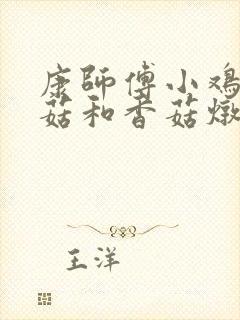 康師傅小鸡
菇和香菇燉
王洋